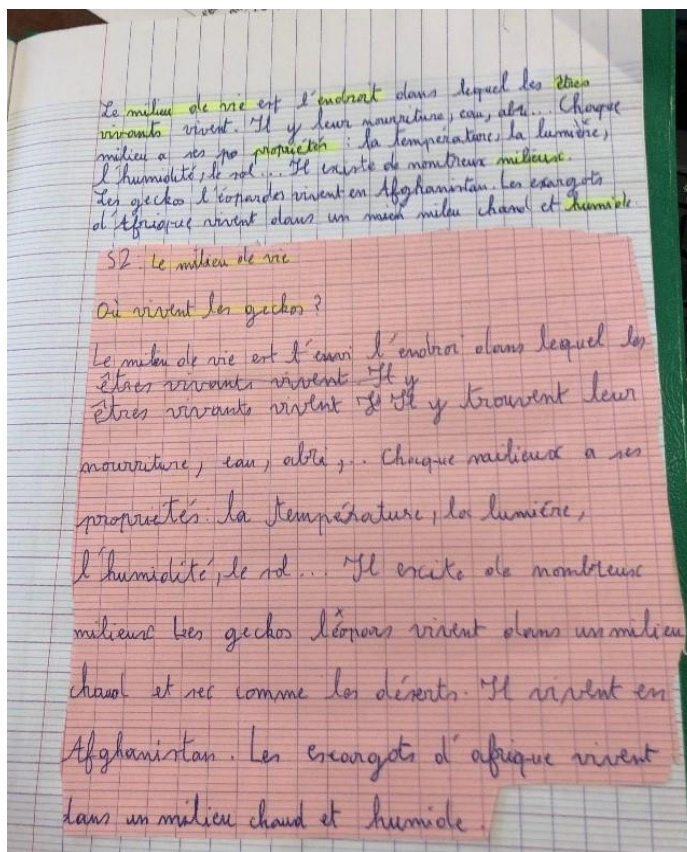 Le milieu de vie est l'endroit dans lequel les êtres
vivants vivent. Il y leur nourriture, eau, abri... Chaque
milieu a ses po proprietés : la température, la lumière,
l'humidité, le sol... Il existe de nombreux milieux.
Les geckos l'éopardes vivent en Afghanistan. Les escargots
d'Afrique vivent dans un milieu chaud et humide
S2. Le milieu de vie
Où vivent les geckos ?
Le milieu de vie est l'envi l'endroi dans lequel les
êtres vivants vivent Il y
êtres vivants vivent Il y trouvent leur
nourriture, eau, abri,... Chaque mailieux a ses
propriétés: la température, la lumiére,
l'humidité, le sol... Il excite de nombreux
milieux Les geckos léopars vivent dans un milieu
chaud et sec comme les déserts. Il vivent en
Afghanistan. Les escargots d'afrique vivent
dans un milieu chaud et humide.